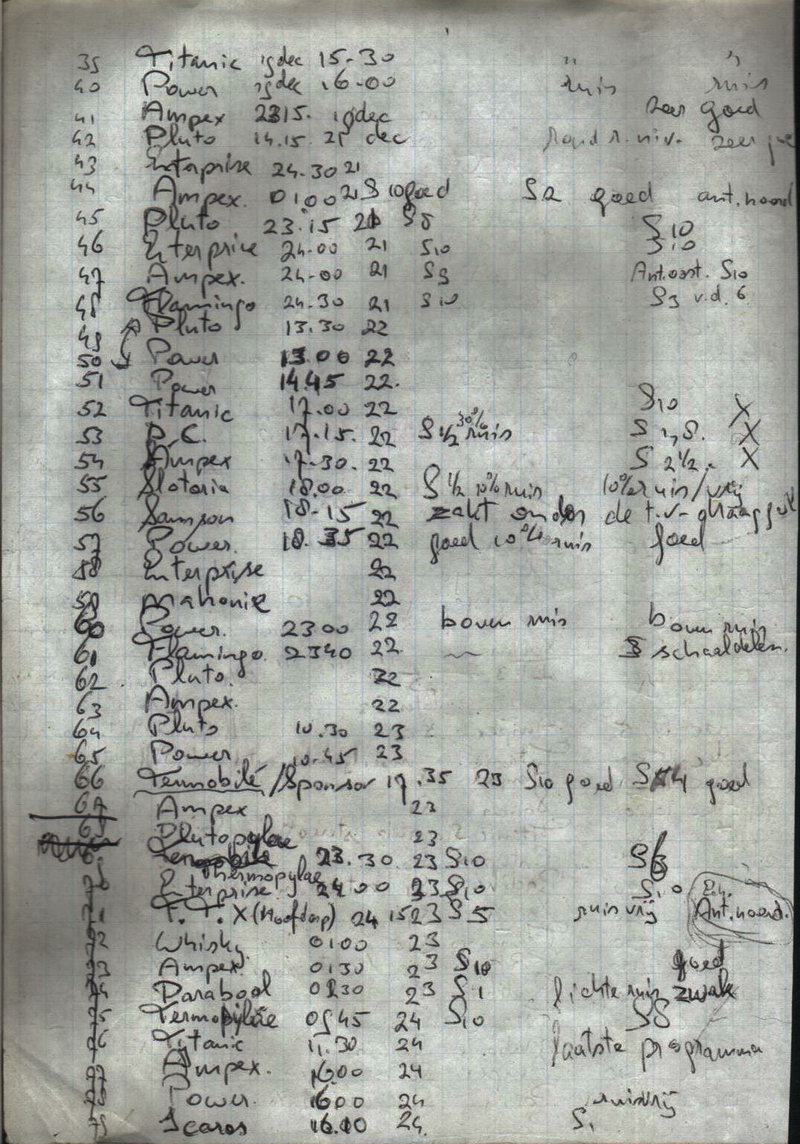 39 Titanic 19 dec 15-30 " "
40 Power 19 dec 16-00 ruis ruis
41 Ampex 2315. 19 dec zeer goed
42 Pluto 14.15. 21 dec zeer
43 Enterprise 24.30 21
44 Ampex. 0100 21 S10 goed S2 goed ant. noord
45 Pluto 23.15 21 S8 S10
46 Enterprise 24.00 21 S10 S10
47 Ampex. 24-00 21 S9 Ant.oost. S10
48 Flamingo 24.30 21 S10 S3 v.d. 6
49 Pluto 13.30 22
50 Power 13.00 22
51 Power 14.45 22.
52 Titanic 17.00 22 S10 X
53 P.C. 17.15. 22 S 1/2 30% ruis S X
54 Ampex 17.30. 22 S 2 1/2. X
55 Slotoria 18.00 22 S 1/2 10% ruis 10% ruis/vrij
56 Samson 18-15 22 zakt onder de t.v-draaggolf
57 Power. 18.35 22 goed 10% ruis goed
58 Enterprise 22
59 Mahonie 22
60 Power. 2300 22 boven ruis boven ruis
61 Flamingo. 2340 22 ~ 8 schaaldelen.
62 Pluto. 22
63 Ampex. 22
64 Pluto 10.30 23
65 Power 10.45 23
66 Termobilé/Sponsor 17.35 23 S10 goed S4 goed
67 Ampex 23
Plutopylae 23
Thermopylae 23.30. 23 S10 S6
70 Enterprise. 24.00 23 S10 S10
71 T.T.X (Hoofdorp) 24 15 23 S5 ruisvrij Ant.noord.
72 Whisky 0100 23
73 Ampex 0130 23 S10 goed
74 Parabool 0230 23 S1 lichte ruis zwak
75 Termopylae 0545 24 S10 S8
76 Titanic 11.30 24 laatste programma
77 Ampex. 1600 24
78 Power. 1600 24 ruisvrij
79 Icaros 16.10 24. S1